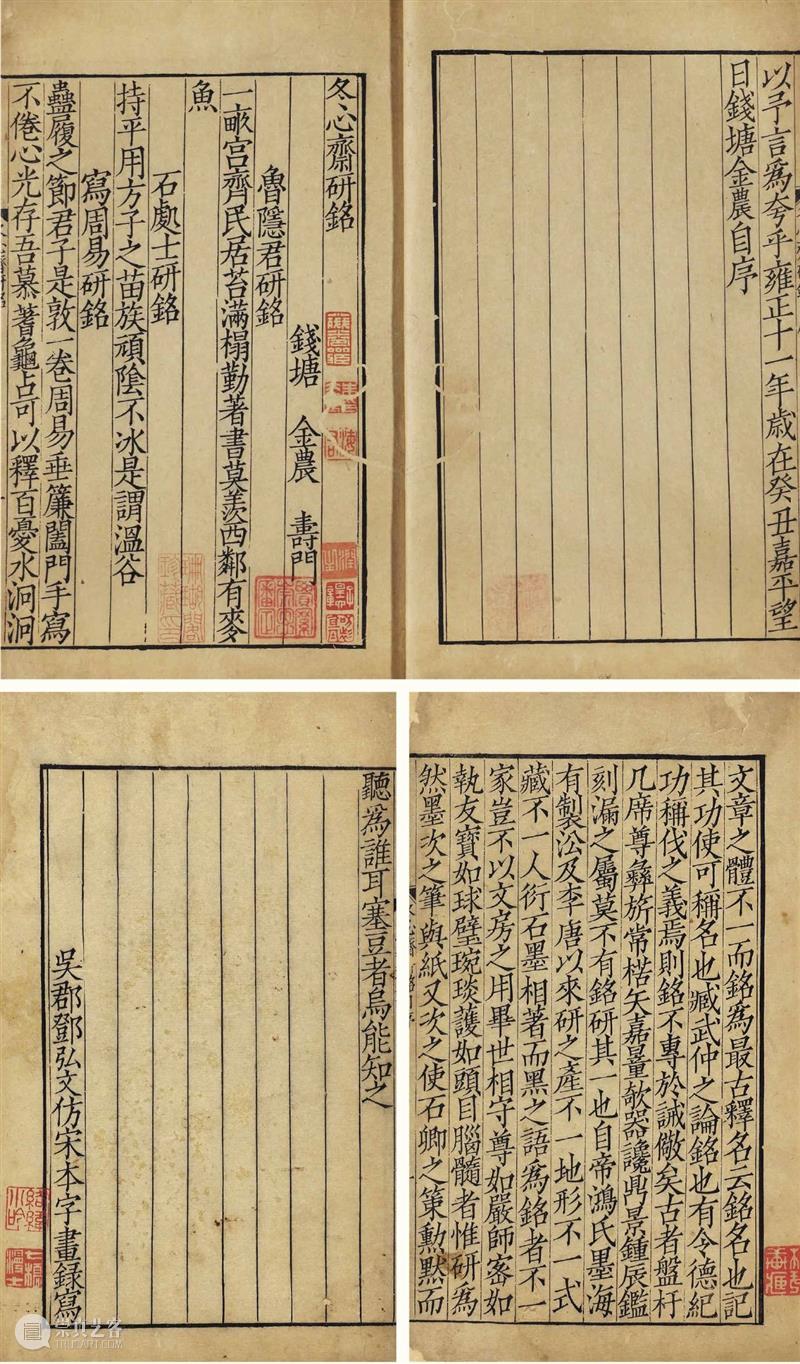 以予言爲夸乎雍正十一年歲在癸丑嘉平望
日錢塘金農自序
冬心齋研銘
錢塘　金農　壽門
魯隱君研銘
一畝宮齊民居苔滿榻勤著書莫羨西鄰有麥
魚
石處士研銘
持平用方子之苗族頑陰不冰是謂溫谷
寫周易研銘
蠱履之節君子是敦一卷周易垂簾闔門手寫
不倦心光存吾慕蓍龜占可以釋百憂水泂泂
文章之體不一而銘爲最古釋名云銘名也記
其功使可稱名也臧武仲之論銘也有令德紀
功稱伐之義焉則銘不專於誡儆矣古者盤杅
几席尊彝旂常楛矢嘉量欹器讒鼎景鍾辰鑑
刻漏之屬莫不有銘研其一也自帝鴻氏墨海
有製㳂及李唐以來研之產不一地形不一式
藏不一人衍石墨相著而黑之語爲銘者不一
家豈不以文房之用畢世相守尊如嚴師密如
執友寶如球璧琬琰護如頭目腦髓者惟研爲
然墨次之筆與紙又次之使石卿之策勳默而
聽爲誰耳塞豆者烏能知之
吳郡鄧弘文仿宋本字畫錄寫
崇真艺客
TRUEART.COM